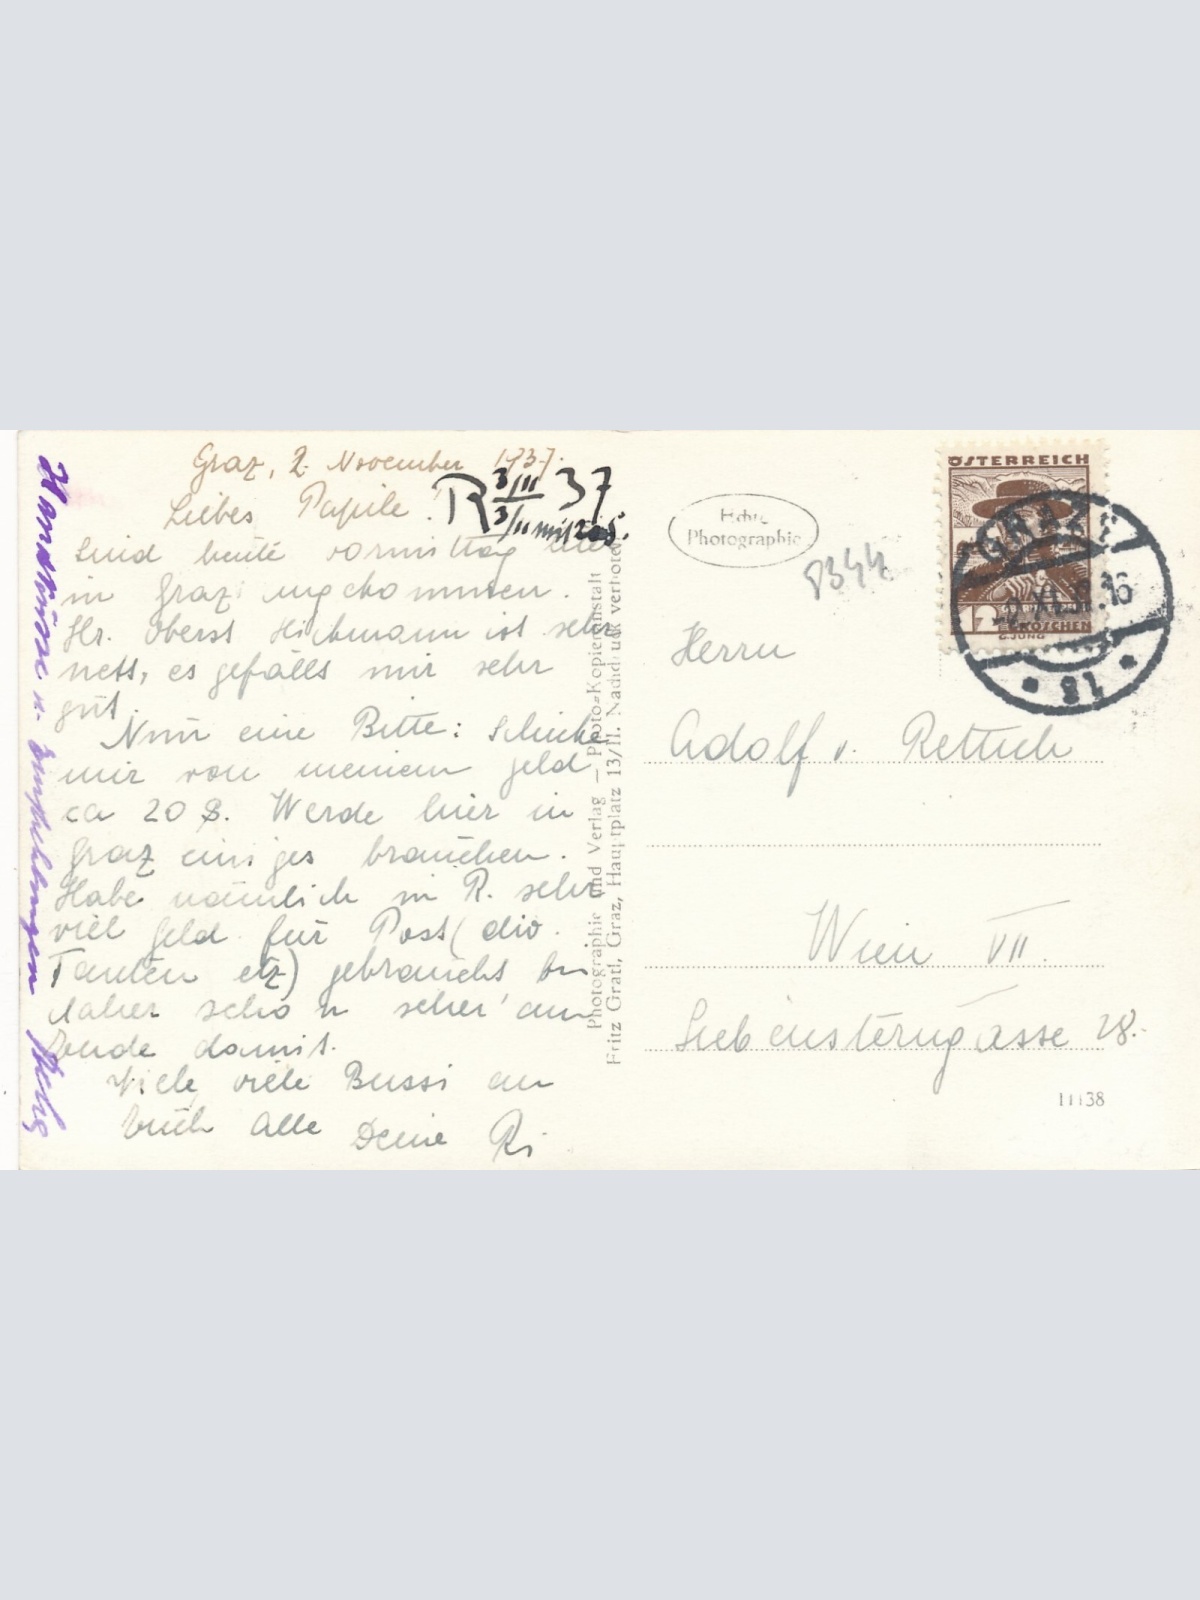 Graz, 2. November 1937.
Liebes Papile!
R 3/11 37
3/11 mit 20 S.
Sind heute vormittag
in Graz angekommen.
Hr. Oberst Hickmann ist sehr
nett, es gefällt mir sehr
gut.
Nun eine Bitte: Schicke
mir von meinem Geld
ca 20 S. Werde hier in
Graz einiges brauchen.
Habe nämlich in R. sehr
viel Geld für Post (div.
Tanten etz) gebraucht bin
daher schon sehr am
Ende damit.
Viele, viele Bussi an
Euch Alle Deine Ri
Handküsse u. Empfehlungen
Photographie und Verlag – Photo-Kopieranstalt
Fritz Gratl, Graz, Hauptplatz 13/II. Nachdruck verboten
Echte
Photographie
8344
ÖSTERREICH
12
GROSCHEN
GRAZ 1
2.XI.37.16
* 1g *
Herrn
Adolf v. Rettich
Wien VII.
Siebensterngasse 28.
11138